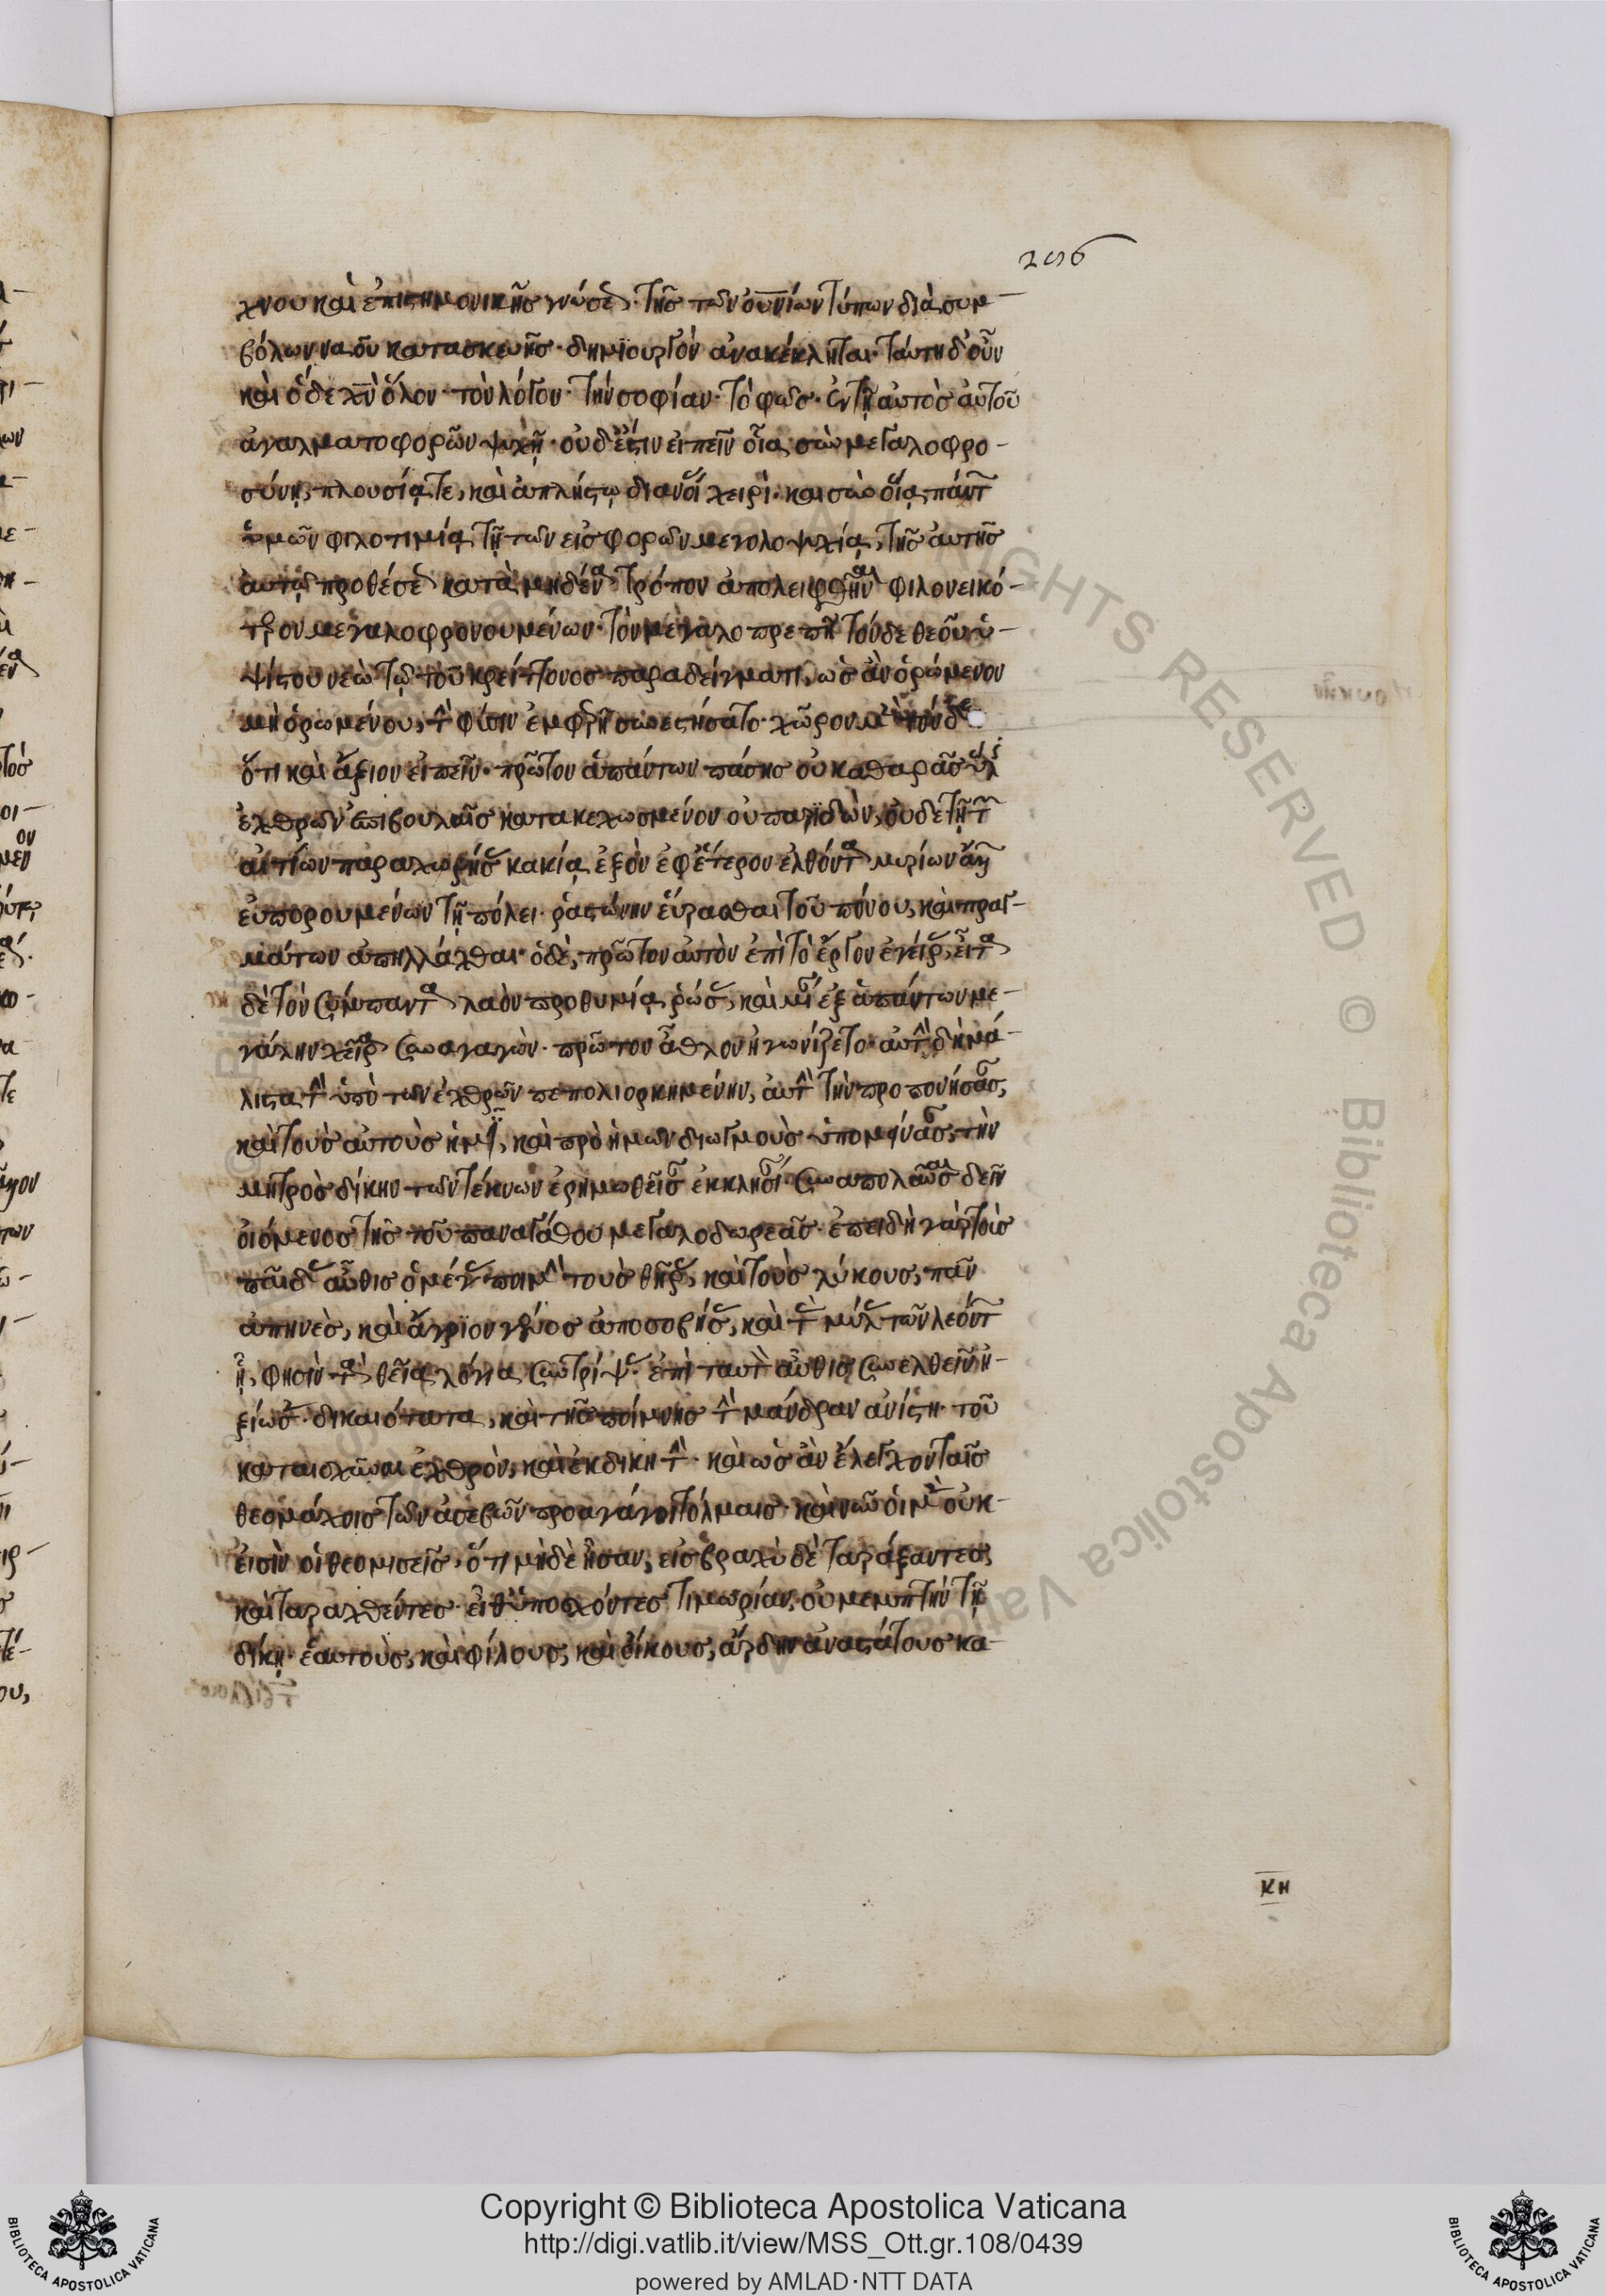 206
χνου καὶ ἐπιστημονικῆς γνώσεως· τῆς τῶν οὐνίων τύπων διὰ συμ-
βόλων ναοῦ κατασκευῆς· δημϊουργὸν ἀνακέκληται· ταύτη δ' οὖν
καὶ ὅδε χν̄ ὅλον· τὸν λόγον· τὴν σοφίαν· τὸ φῶς· ἐν τῆ αὐτὸς αὐτοῦ
ἀγαλματοφορῶν ψυχῇ· οὐδ' ἔστιν εἰπεῖν οἵᾳ σὺν μεγαλοφρο-
σύνῃ, πλουσίᾳ τε, καὶ ἀπλήστῳ διανοίας χειρὶ· καὶ σὺν οἵᾳ πάντων
ὑμῶν φιλοτιμίᾳ, τῇ τῶν εἰσφορῶν μεγαλοψυχίᾳ, τῆς αὐτῆς
αὐτῷ προθέσεως κατὰ μηδένα τρόπον ἀπολειφθῆναι φιλονεικό-
τερον μεγαλοφρονουμένων· τὸν μεγαλοπρεπῆ τόνδε θεοῦ ὑ-
ψίστου νεὼ τῷ τοῦ κρείττονος παραδείγματι, ὡς ἂν ὁρώμενον
μὴ ὁρωμένου, τὴν φύσιν ἐμφερῆ συνεστήσατο· χῶρον μὲν τόνδε
ὅτι καὶ ἄξιον εἰπεῖν· πρῶτον ἁπάντων πάσης οὐ καθαρᾶς ὕλης
ἐχθρῶν ἐπιβουλαῖς κατακεχωσμένον οὐ παριδὼν, οὐδὲ τῇ τῶν
αἰτίων παραχωρήσας κακίᾳ, ἐξὸν ἐφ' ἕτερον ἐλθόντα μυρίων ἄλλων
εὐπορουμένων τῇ πόλει· ῥᾳστώνην εὕρασθαι τοῦ πόνου, καὶ πραγ-
μάτων ἀπηλλάχθαι· ὁ δὲ, πρῶτον αὐτὸν ἐπὶ τὸ ἔργον ἐγείρας, εἶτα
δὲ τὸν σύμπαντα λαὸν προθυμίᾳ ῥώσας, καὶ μίαν ἐξ ἁπάντων με-
γάλην χεῖρα συναγαγὼν· πρῶτον ἆθλον ἠγωνίζετο· αὐτὴν δὴ μά-
λιστα τὴν ὑπὸ τῶν ἐχθρῶν πεπολιορκημένην, αὐτὴν τὴν προπονήσασαν,
καὶ τοὺς αὐτοὺς ἡμῖν, καὶ πρὸ ἡμῶν διωγμοὺς ὑπομείνασαν, τὴν
μητρὸς δίκην τῶν τέκνων ἐρημωθεῖσαν ἐκκλησίαν· συναπολαῦσαι δεῖν
οἰόμενος τῆς τοῦ παναγάθου μεγαλοδωρεᾶς· ἐπειδὴ γὰρ τοὺς
παῖδας αὖθις ὁ μέγας ποιμὴν τοὺς θῆρας, καὶ τοὺς λύκους, πᾶν
ἀπηνὲς, καὶ ἄγριον γένος ἀποσοβήσας, καὶ τὰς μύλας τῶν λεόντων
ᾗ, φησὶν τὰ θεῖα λόγια συντρίψας· ἐπὶ ταυτὸν αὖθις συνελθεῖν ἠ-
ξίωσε· δικαιότατα, καὶ τῆς ποίμνης τὴν μάνδραν ἀνίστη· τοῦ
καταισχῦναι ἐχθρὸν, καὶ ἐκδικητὴν· καὶ ὡς ἂν ἔλεγχον ταῖς
θεομάχοις τῶν ἀσεβῶν προαγάγοι τόλμαις· καὶ νῦν οἱ μὲν οὐκ-
εἰσὶν οἱ θεομισεῖς, ὅτι μηδὲ ἦσαν, εἰς βραχὺ δὲ ταράξαντες,
καὶ ταραχθέντες· εἶθ' ὑποσχόντες τιμωρίαν, οὐ μεμπτὴν τῇ
δίκῃ· ἑαυτοὺς, καὶ φίλους, καὶ οἴκους, ἄρδην ἀναστάτους κα-
κη
Copyright © Biblioteca Apostolica Vaticana
http://digi.vatlib.it/view/MSS_Ott.gr.108/0439
powered by AMLAD·NTT DATA